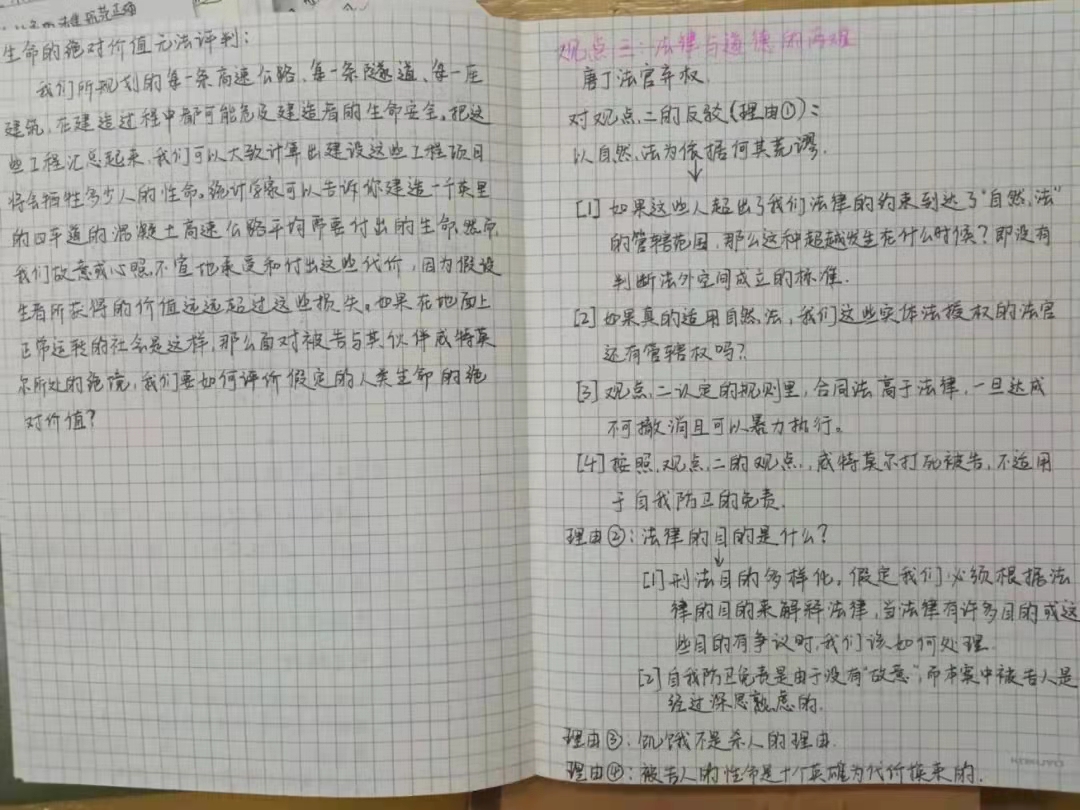 生命的绝对价值无法评判：
我们所规划的每一条高速公路、每一条隧道、每一座
建筑，在建造过程中都可能危及建造者的生命安全。把这
些工程汇总起来，我们可以大致计算出建设这些工程项目
将会牺牲多少人的性命。统计学家可以告诉你建造一个英里
的四车道的混凝土高速公路平均即要付出的生命。然而，
我们故意或心照不宣地承受和付出这些代价，因为假设
生者所获得的价值远远超过这些损失。如果在地面上
正常运转的社会是这样，那么面对被告与其伙伴威特莫
尔所处的绝境，我们要如何评价假定的人类生命的绝
对价值？
观点三：法律与道德的两难
唐丁法官弃权.
对观点二的反驳(理由①)：
以自然法为依据何其荒谬.
[1] 如果这些人超出了我们法律的约束到达了"自然法"
的管辖范围，那么这种超越发生在什么时候？即没有
判断法外空间成立的标准.
[2] 如果真的适用自然法，我们这些实体法授权的法官
还有管辖权吗？
[3] 观点二认定的规则里，合同法高于法律，一旦达成
不可撤消且可以暴力执行。
[4] 按照观点二的观点，威特莫尔打死被告，不适用
于自我防卫的免责.
理由②：法律的目的是什么？
[1] 刑法目的多样化，假定我们必须根据法
律的目的来解释法律，当法律有许多目的或这
些目的有争议时，我们该如何处理.
[2] 自我防卫免责是由于没有"故意"，而本案中被告人是
经过深思熟虑的.
理由③：饥饿不是杀人的理由.
理由④：被告人的性命是十个英雄为代价换来的.
KOKUYO